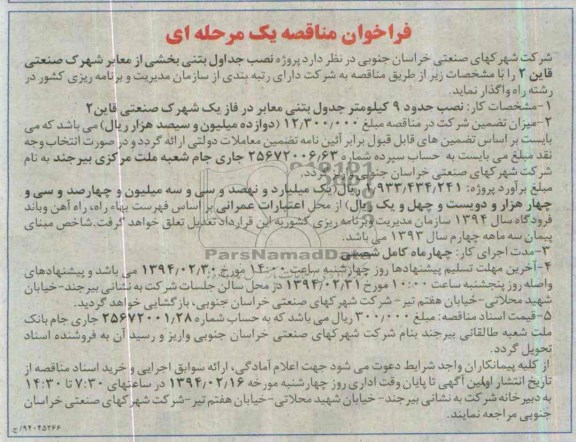 فراخوان مناقصه یک مرحله ای
شرکت شهرکهای صنعتی خراسان جنوبی در نظر دارد پروژه نصب جداول بتنی بخشی از معابر شهرک صنعتی
قاین ۲ را با مشخصات زیر از طریق مناقصه به شرکت دارای رتبه بندی از سازمان مدیریت و برنامه ریزی کشور در
رشته راه واگذار نماید.
۱-مشخصات کار: نصب حدود ۹ کیلومتر جدول بتنی معابر در فاز یک شهرک صنعتی قاین۲
۲-میزان تضمین شرکت در مناقصه مبلغ ۱۲,۳۰۰,۰۰۰ (دوازده میلیون و سیصد هزار ریال) می باشد که می
بایست بر اساس تضمین های قابل قبول برابر آئین نامه تضمین معاملات دولتی ارائه گردد و در صورت انتخاب وجه
نقد مبلغ می بایست به حساب سپرده شماره ۲۵۶۷۲۰۰۶٫۶۳ جاری جام شعبه ملت مرکزی بیرجند به نام
شرکت شهرکهای صنعتی خراسان جنوبی واریز گردد.
مبلغ برآورد پروژه: ۱,۹۳۳,۴۳۴,۲۴۱ ریال (یک میلیارد و نهصد و سی و سه میلیون و چهارصد و سی و
چهار هزار و دویست و چهل و یک ریال) از محل اعتبارات عمرانی بر اساس فهرست بهاء راه، راه آهن وباند
فرودگاه سال ۱۳۹۴ سازمان مدیریت و برنامه ریزی کشور به این قرارداد تعدیل تعلق خواهد گرفت.شاخص مبنای
پیمان سه ماهه چهارم سال ۱۳۹۳ می باشد.
۳-مدت اجرای کار: چهارماه کامل شمسی
۴-آخرین مهلت تسلیم پیشنهادها روز چهارشنبه ساعت ۱۴:۰۰ مورخ ۱۳۹۴٫۰۲٫۳۰ می باشد و پیشنهادهای
واصله روز پنجشنبه ساعت ۱۰:۰۰ مورخ ۱۳۹۴٫۰۲٫۳۱ در محل سالن جلسات شرکت به نشانی بیرجند-خیابان
شهید محلاتی-خیابان هفتم تیر- شرکت شهرکهای صنعتی خراسان جنوبی، بازگشایی خواهد گردید.
۵-قیمت اسناد مناقصه: مبلغ ۳۰۰,۰۰۰ ریال می باشد که به حساب شماره ۲۵۶۷۲۰۰۱٫۲۸ جاری جام بانک
ملت شعبه طالقانی بیرجند بنام شرکت شهرکهای صنعتی خراسان جنوبی واریز و رسید آن به فروشنده اسناد
تحویل گردد.
از کلیه پیمانکاران واجد شرایط دعوت می شود جهت اعلام آمادگی، ارائه سوابق اجرایی و خرید اسناد مناقصه از
تاریخ انتشار اولین آگهی تا پایان وقت اداری روز چهارشنبه مورخه ۱۳۹۴٫۰۲٫۱۶ در ساعتهای ۷:۳۰ تا ۱۴:۳۰
به دبیرخانه شرکت به نشانی بیرجند- خیابان شهید محلاتی-خیابان هفتم تیر-شرکت شهرکهای صنعتی خراسان
جنوبی مراجعه نمایند.
۹۴۰۴۵۲۶۶/ج
ParsNamadData